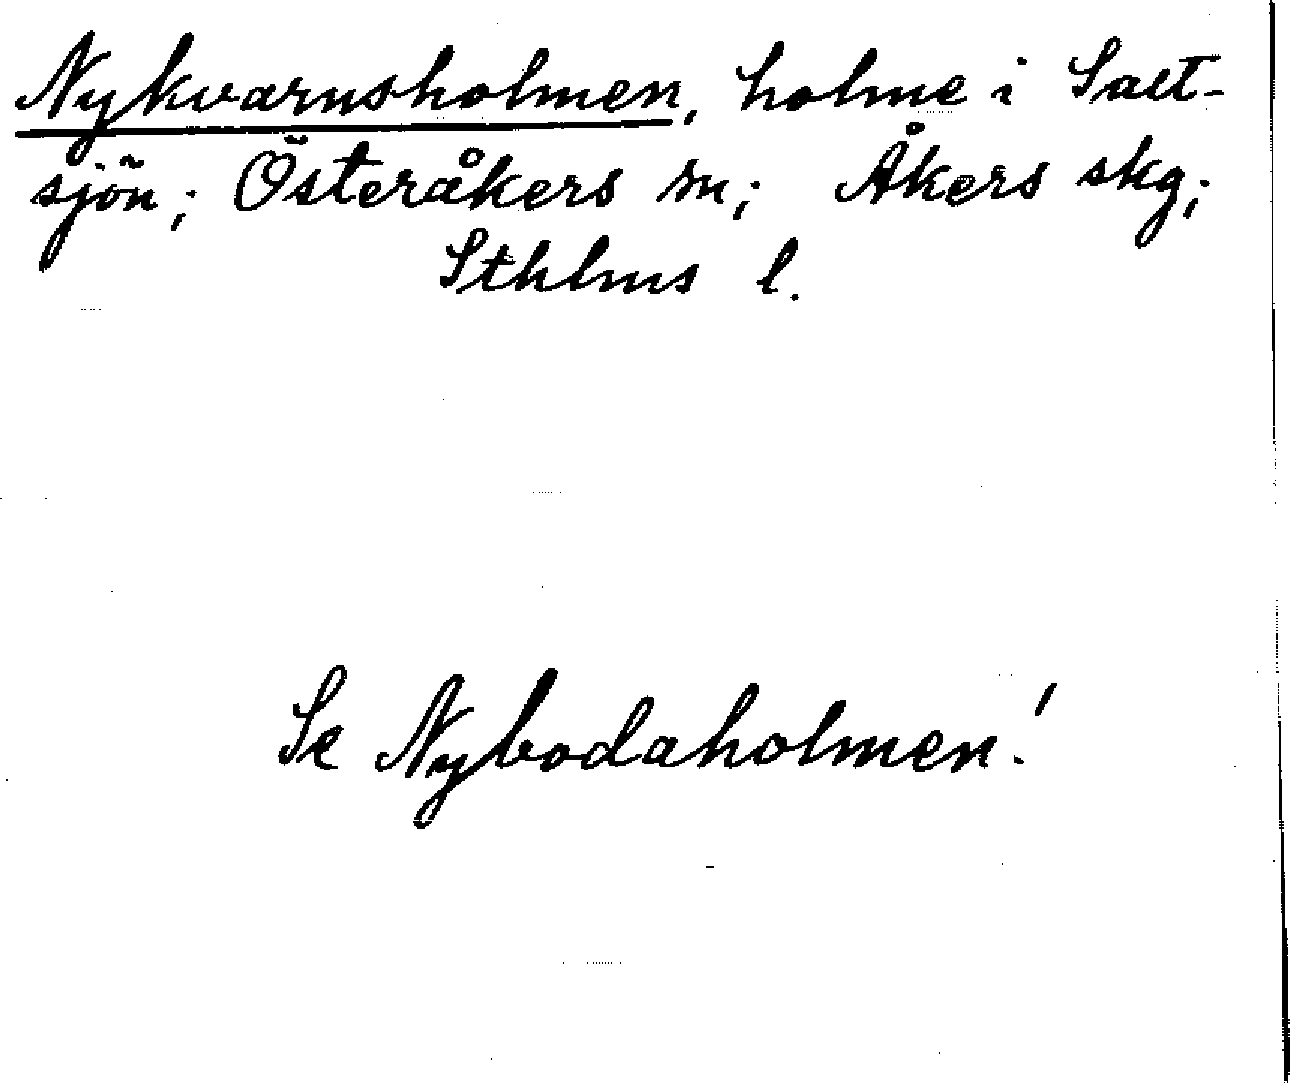 Nykvarnsholmen, holme i Salt-
sjön; Österåkers sn; Åkers skg;
Sthlms l.
Se Nybodaholmen!